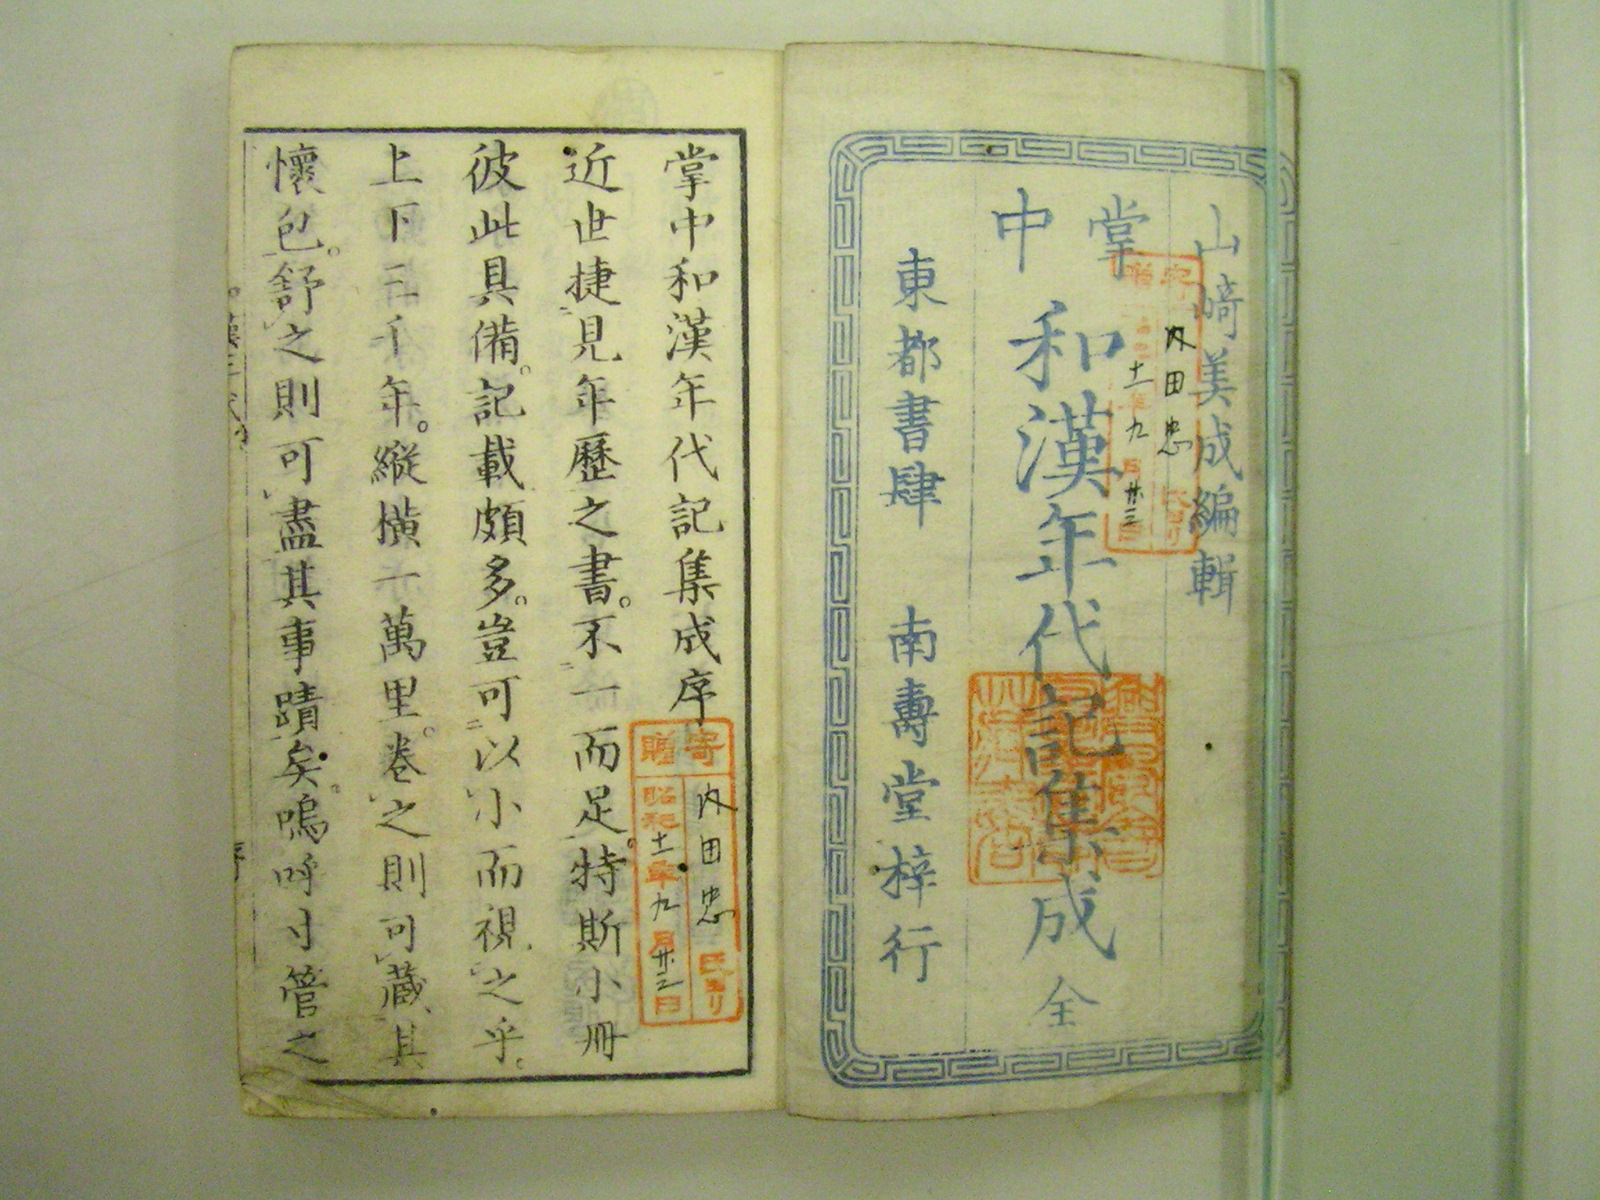 山崎美成編輯
掌中
和漢年代記集成 全
東都書肆 南壽堂梓行
寄贈
内田忠氏ヨリ
十一年九月廿三日
掌中和漢年代記集成序
近世捷見年歷之書。不一而足。特斯小冊
彼此具備。記載頗多。豈可以小而視之乎。
上下三千年。縱橫一萬里。卷之則可藏其
懷包。舒之則可盡其事蹟矣。嗚呼寸管之
寄贈
内田忠氏ヨリ
昭和十一年九月廿三日
序